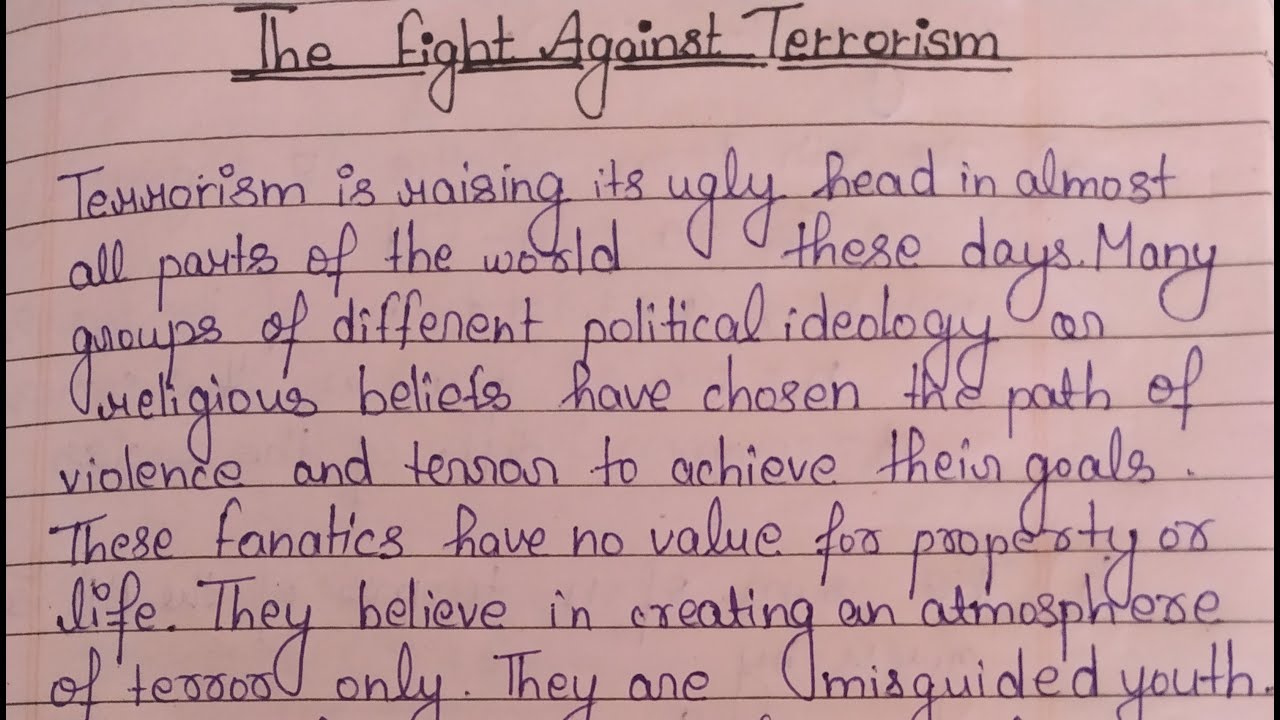 The Fight Against Terrorism
Terrorism is raising its ugly head in almost
all parts of the world these days. Many
groups of different political ideology or
religious beliefs have chosen the path of
violence and terror to achieve their goals.
These fanatics have no value for property or
life. They believe in creating an atmosphere
of terror only. They are misguided youth.